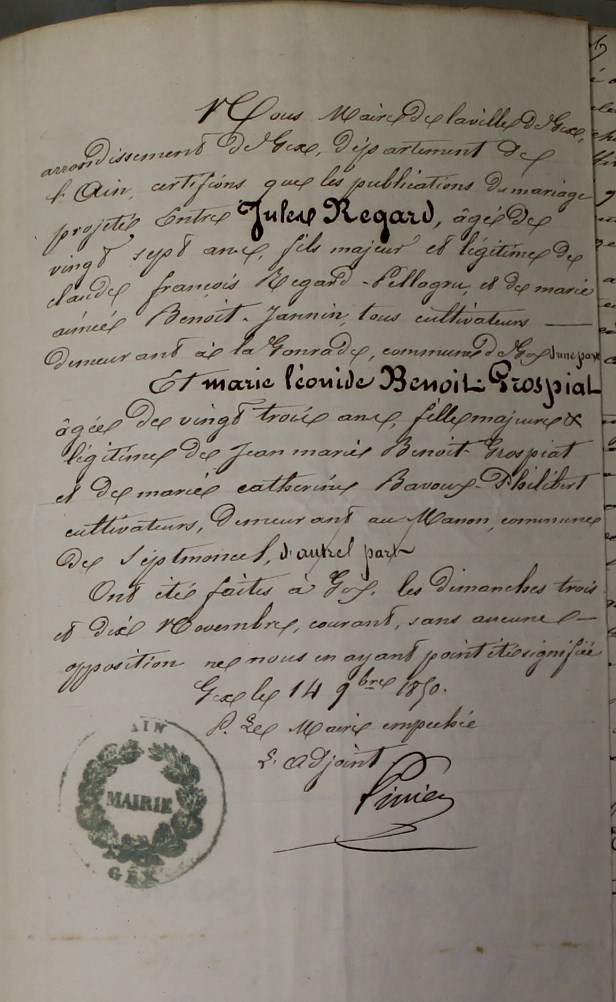 Nous Maire de la ville de Gex,
arrondissement de Gex, département de
l'Ain, certifions que les publications du mariage
projeté Entre Jules Regard, âgé de
vingt sept ans, fils majeur et légitime de
claude françois Regard-Pellogru, et de marie
aimée Benoit-Jannin, tous cultivateurs —
demeurant à la , commune de Gex d'une part
Et marie léonide Benoit-Grospiat
âgée de vingt trois ans, fille majeure &
légitime de Jean marie Benoit-Grospiat
et de marie catherine Bavoux-Philibert
cultivateurs, demeurant au Manon, commune
de Septmoncel, d'autre part
Ont été faites à Gex, les dimanches trois
et dix Novembre, courant, sans aucune —
opposition ne nous en ayant point été signifiée
Gex le 14 9bre 1850.
P. Le Maire empêché
L'adjoint
AIN
MAIRIE
GEX